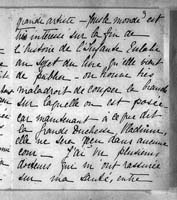 grande artiste — Tout le monde est
intéressé sur la fin de
l'histoire de l'Infante Eulalie
au sujet du livre qu'elle vient
de publier — on trouve très
maladroit de couper la branche
sur laquelle on est posée
car maintenant à ce que dit
la Grande Duchesse Vladimir,
elle ne sera reçue dans aucune
cour — J'ai vu plusieurs
docteurs qui m'ont rassurée
sur ma santé, entre